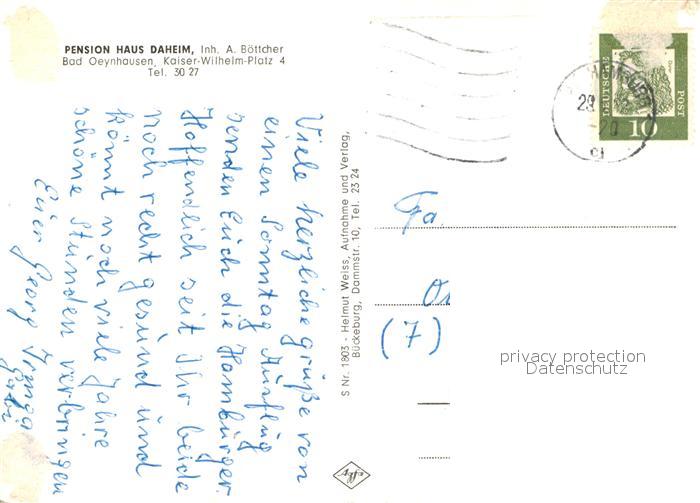 PENSION HAUS DAHEIM, Inh. A. Böttcher
Bad Oeynhausen, Kaiser-Wilhelm-Platz 4
Tel. 30 27
Viele herzliche Grüße von
einen Sonntag Ausflug
senden Euch die Hamburger.
Hoffendlich seit Ihr beide
noch recht gesund und
könnt noch viele Jahre
schöne Stunden verbringen
Euer Georg Irmga
Gabi
S Nr. 1803 - Helmut Weiss, Aufnahme und Verlag,
Bückeburg, Dammstr. 10, Tel. 23 24
DEUTSCHE
POST
10
Fa.
(7)
privacy protection
Datenschutz